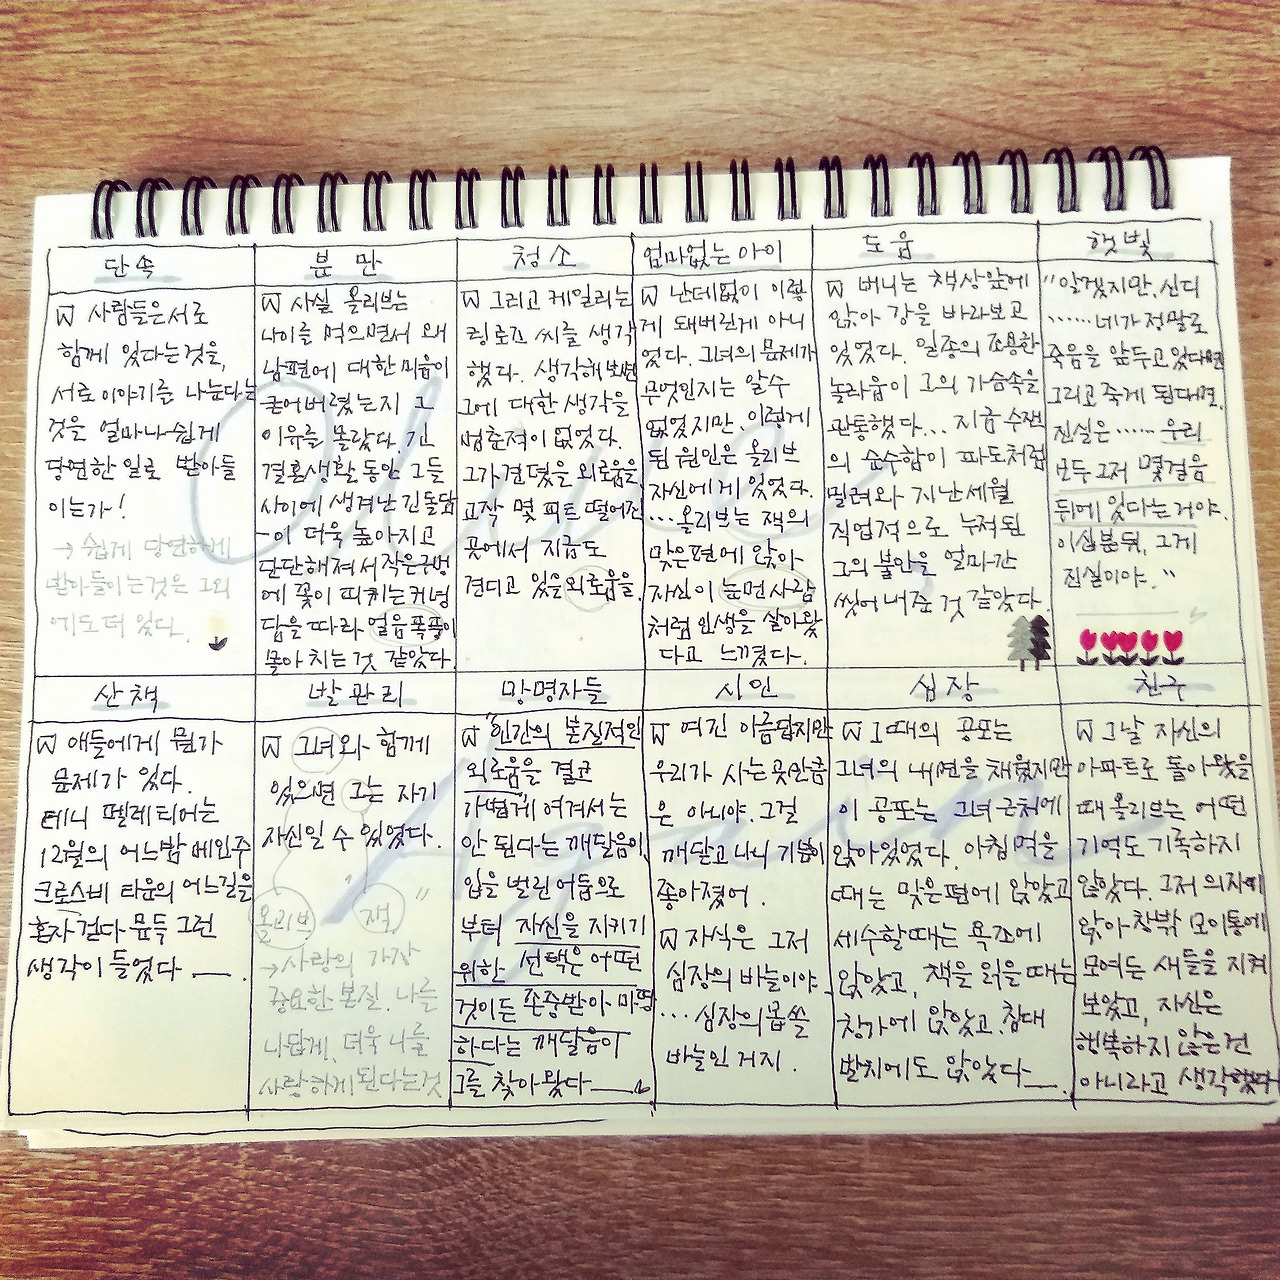 단속
사람들은 서로
함께 있다는 것을,
서로 이야기를 나눈다는
것을 얼마나 쉽게
당연한 일로 받아들
이는가!
→ 쉽게 당연하게
받아들이는 것은 그외
에도 더 있다.
분만
사실 올리브는
나이를 먹으면서 왜
남편에 대한 미움이
굳어버렸는지 그
이유를 몰랐다. 긴
결혼생활 동안 그들
사이에 생겨난 긴 돌담
이 더욱 높아지고
단단해져서 작은 구멍
에 꽃이 피기는커녕
담을 따라 얼음 폭풍이
몰아치는 것 같았다.
청소
그리고 케일리는
링로즈 씨를 생각
했다. 생각해보면
그에 대한 생각을
멈춘적이 없었다.
그가 견뎠을 외로움을
고작 몇 피트 떨어진
곳에서 지금도
견디고 있을 외로움을.
엄마없는 아이
난데없이 이렇
게 돼버린게 아니
었다. 그녀의 문제가
무엇인지는 알수
없었지만, 이렇게
된 원인은 올리브
자신에게 있었다.
…올리브는 잭의
맞은편에 앉아
자신이 눈먼 사람
처럼 인생을 살아왔
다고 느꼈다.
도움
버니는 책상앞에
앉아 강을 바라보고
있었다. 일종의 조용한
놀라움이 그의 가슴속을
관통했다... 지금 수잰
의 순수함이 파도처럼
밀려와 지난세월
직업적으로 누적된
그의 불안을 얼마간
씻어내준 것 같았다.
햇빛
"알겠지만, 신디
……네가 정말로
죽음을 앞두고 있다면
그리고 죽게 된다면,
진실은…… 우리
모두 그저 몇걸음
뒤에 있다는 거야.
이십분 뒤, 그게
진실이야."
산책
애들에게 뭔가
문제가 있다.
데니 펠레티어는
12월의 어느밤 메인주
크로스비 타운의 어느길을
혼자 걷다 문득 그런
생각이 들었다 —.
발관리
그녀와 함께
있으면 그는 자기
자신일 수 있었다.
올리브 잭
→ 사랑의 가장
중요한 본질. 나를
나답게, 더욱 나를
사랑하게 된다는 것
망명자들
인간의 본질적인
외로움을 결코
가볍게 여겨서는
안 된다는 깨달음이,
입을 벌린 어둠으로
부터 자신을 지키기
위한 선택은 어떤
것이든 존중받아 마땅
하다는 깨달음이
그를 찾아왔다—.
시인
여긴 아름답지만
우리가 사는 곳만큼
은 아니야. 그걸
깨닫고 나니 기분이
좋아졌어.
자식은 그저
심장의 바늘이야
… 심장의 몹쓸
바늘인 거지.
심장
그때의 공포는
그녀의 내면을 채웠지만
이 공포는 그녀 근처에
앉아있었다. 아침 먹을
때는 맞은편에 앉았고
세수할때는 욕조에
앉았고, 책을 읽을 때는
창가에 앉았고, 침대
발치에도 앉았다—.
친구
그날 자신의
아파트로 돌아왔을
때 올리브는 어떤
기억도 기록하지
않았다. 그저 의자에
앉아 창밖 모이통에
모여든 새들을 지켜
보았고, 자신은
행복하지 않은건
아니라고 생각했다
Olive,
Again